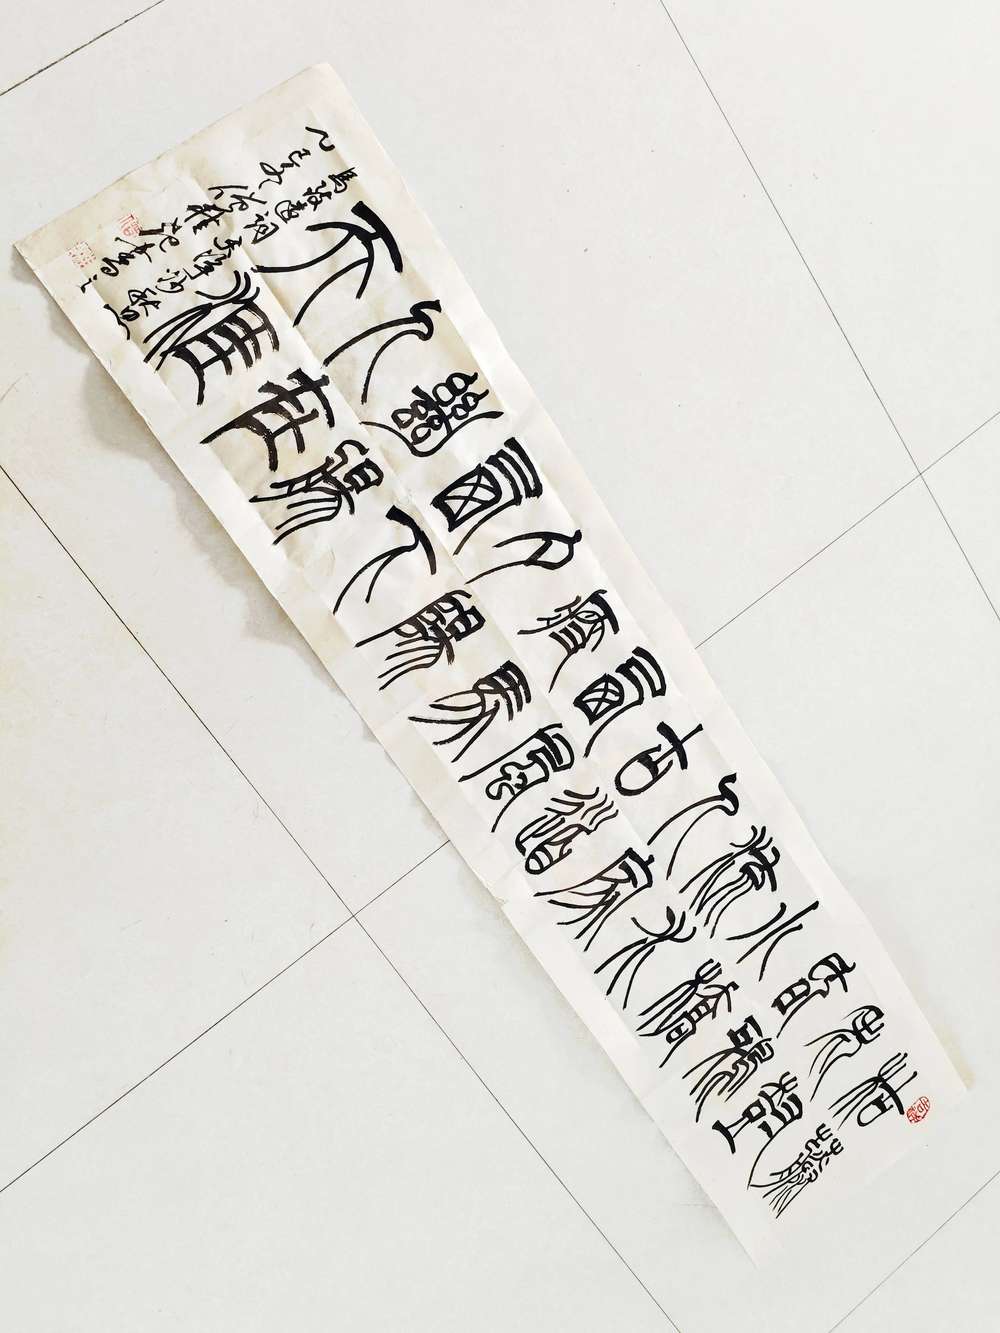 枯藤
老樹
昏鴉
小橋
流水
人家
古道
西風
瘦馬
夕陽
西下
斷腸
人在
天涯
馬致遠詞天淨沙秋思